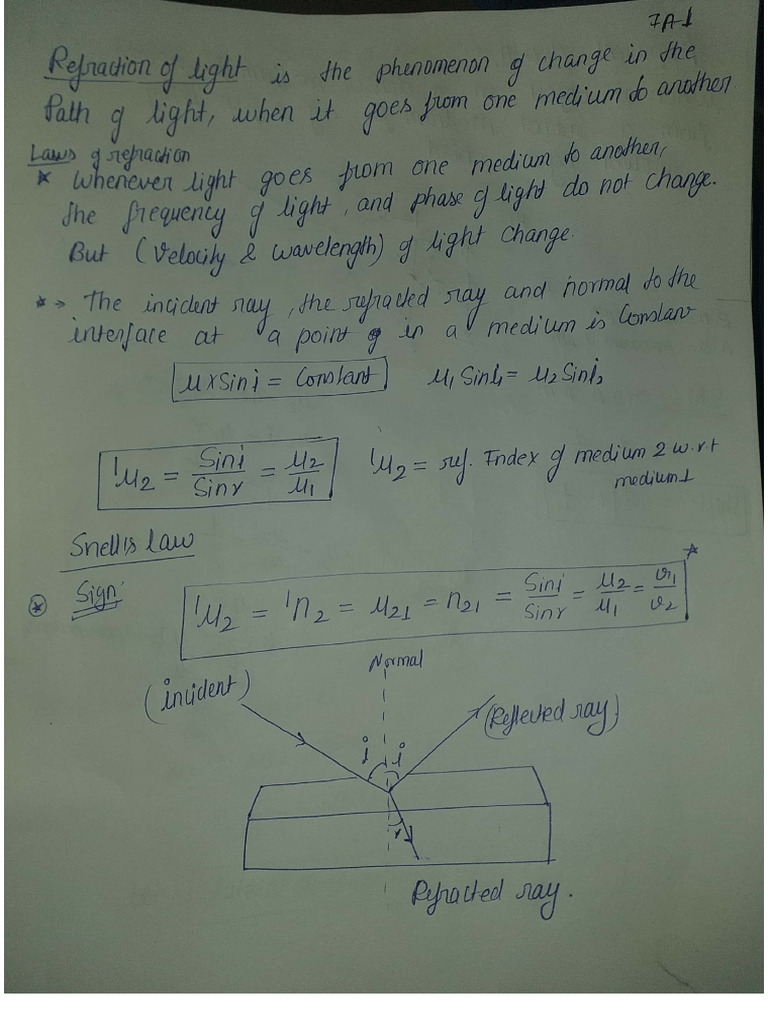 7A-1
Refraction of light is the phenomenon of change in the
Path of light, when it goes from one medium to another.
Laws of refraction
* Whenever light goes from one medium to another,
the frequency of light, and phase of light do not change.
But (Velocity & wavelength) of light Change.
* → The incident ray, the refracted ray and normal to the
interface at a point in a medium is Constant
μ x Sin i = Constant   μ₁ Sin i₁ = μ₂ Sin i₂
¹μ₂ = Sin i / Sin r = μ₂ / μ₁   ¹μ₂ = ref. Index of medium 2 w.r.t
medium 1
Snell's law
* Sign:   ¹μ₂ = ¹n₂ = μ₂₁ = n₂₁ = Sin i / Sin r = μ₂ / μ₁ = v₁ / v₂ *
Normal
(incident)
(Reflected ray)
i i
r
Refracted ray.